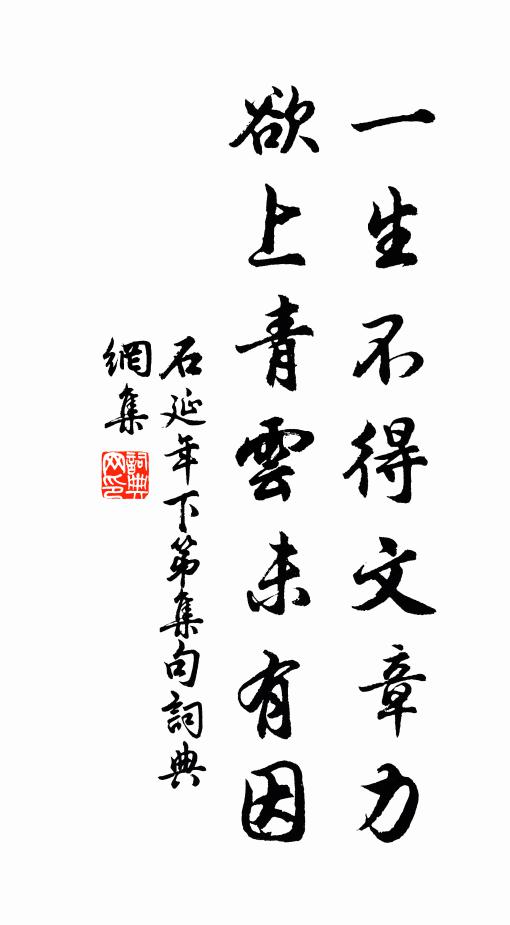 一生不得文章力
欲上青雲未有因
石延年下第集句詞典
網集
詞典網印